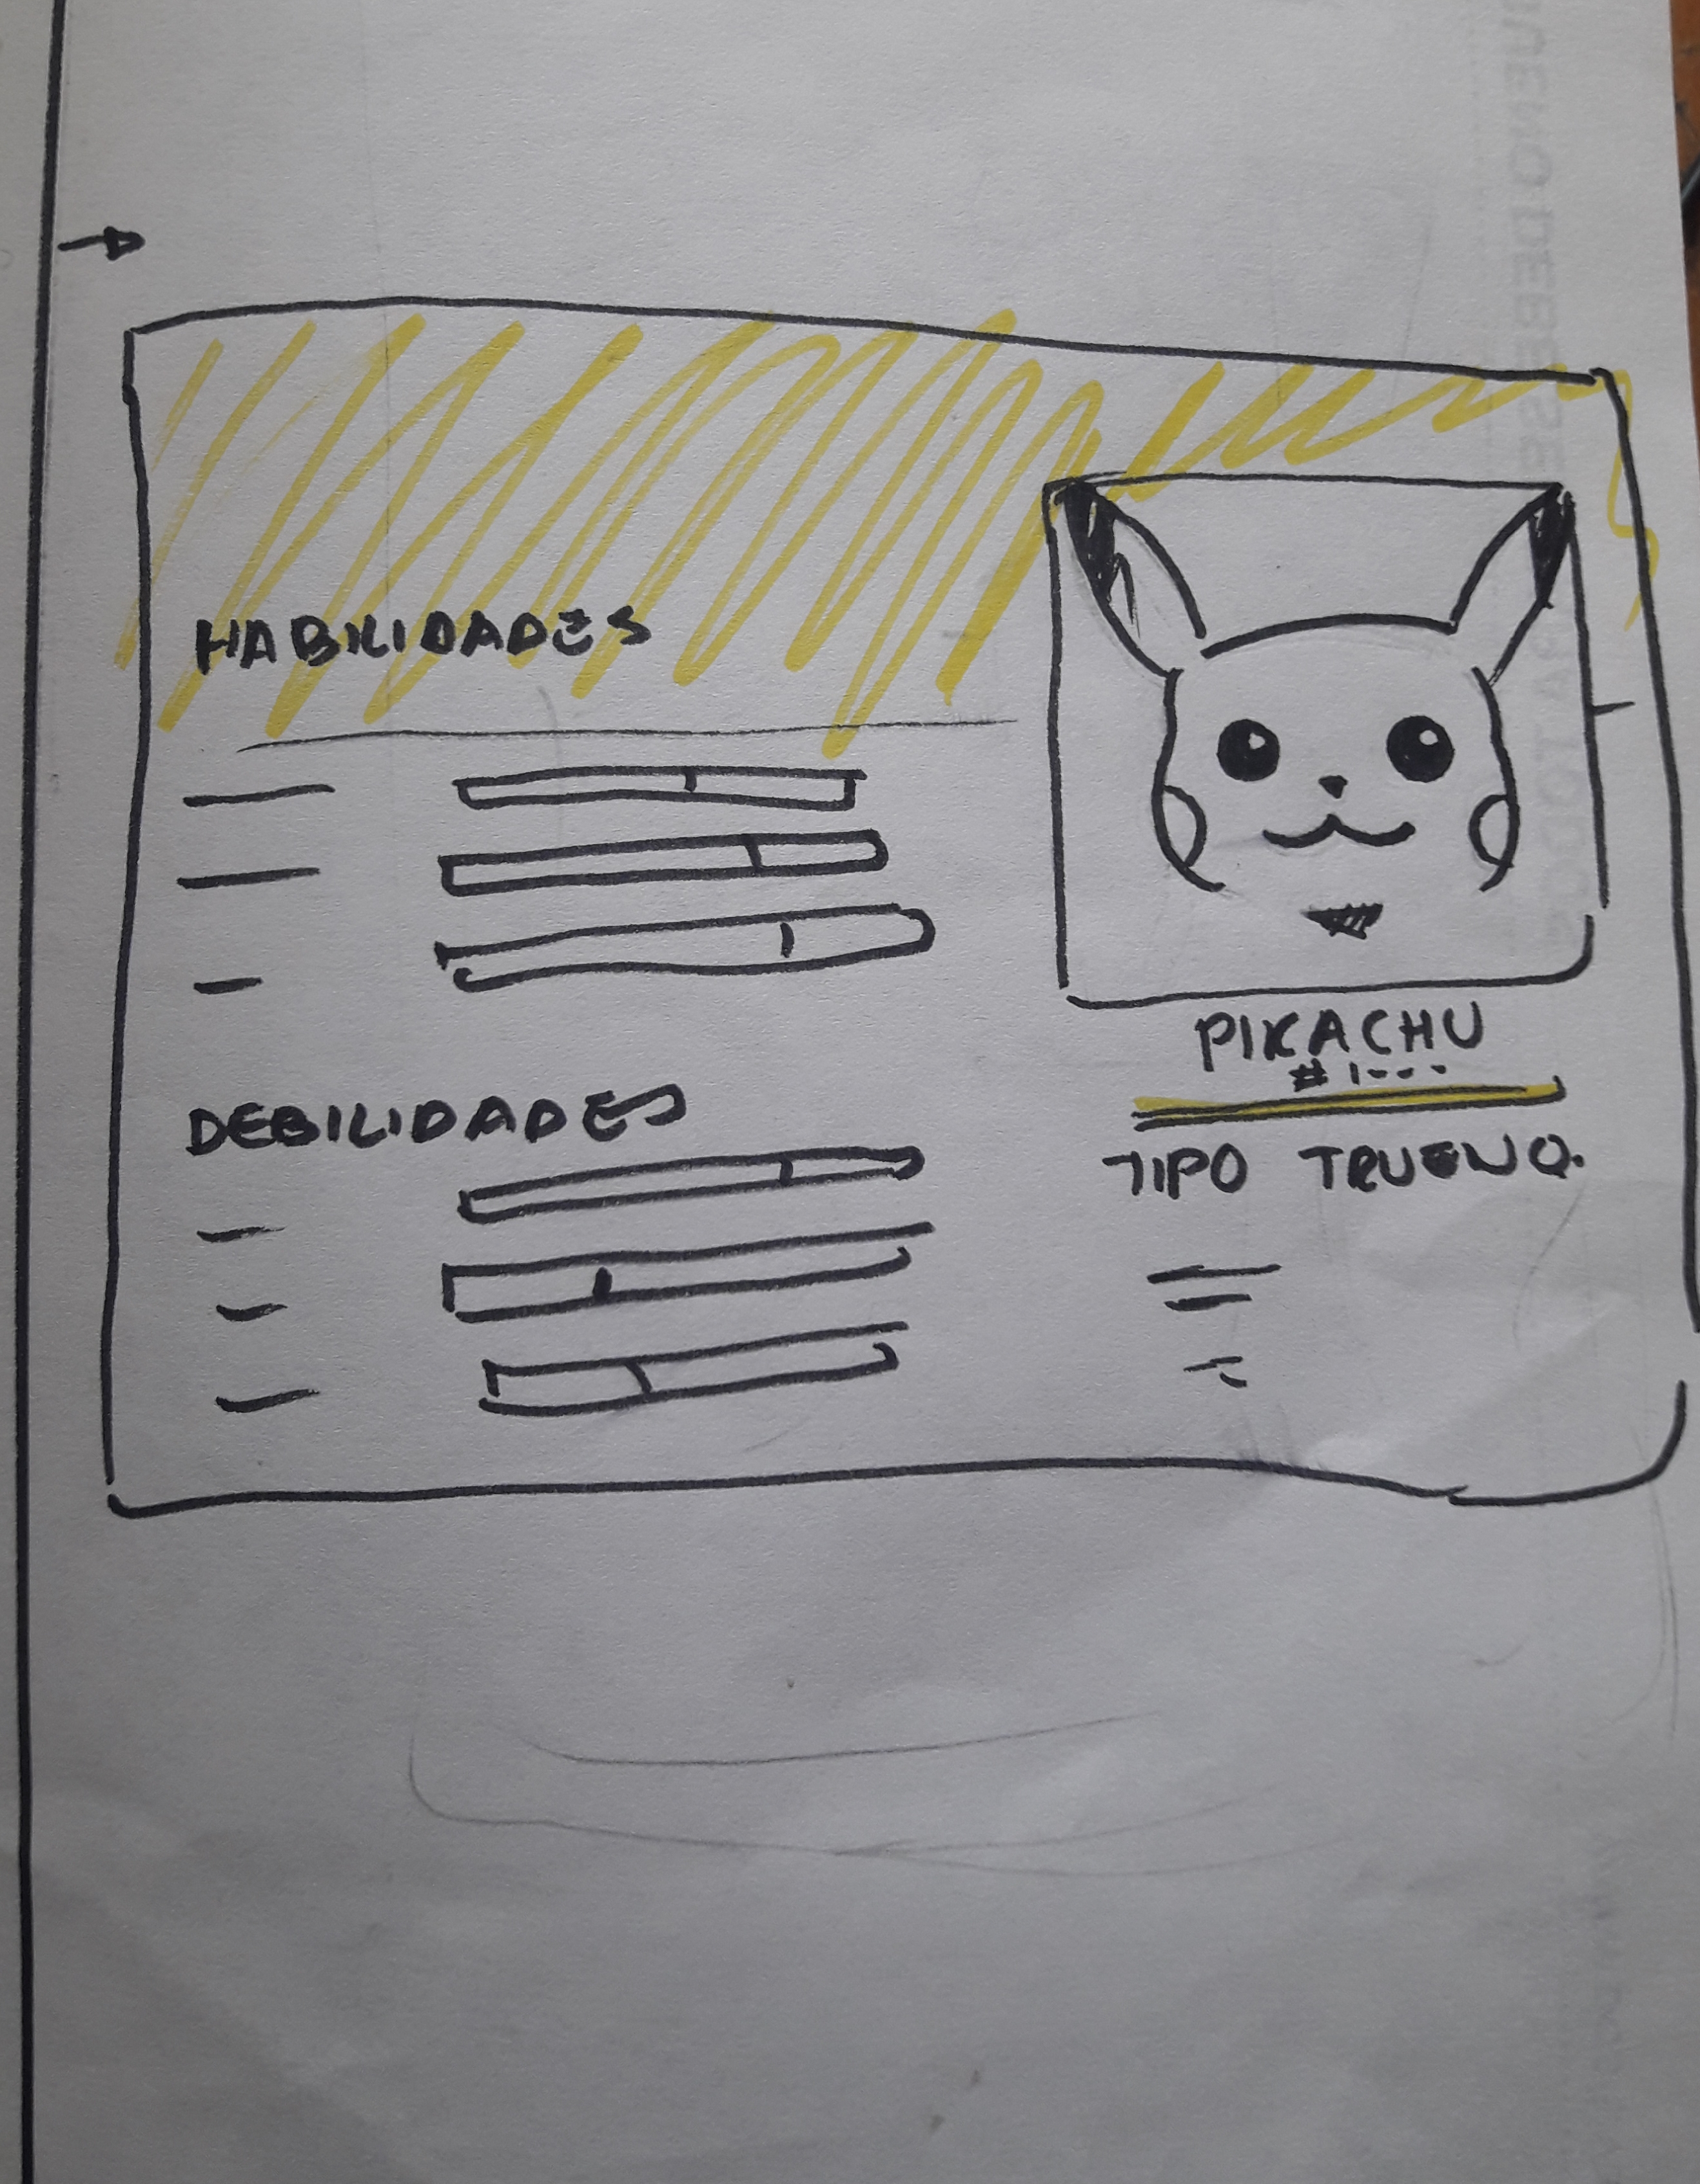 HABILIDADES
DEBILIDADES
PIKACHU
# 1---
TIPO TRUENO.